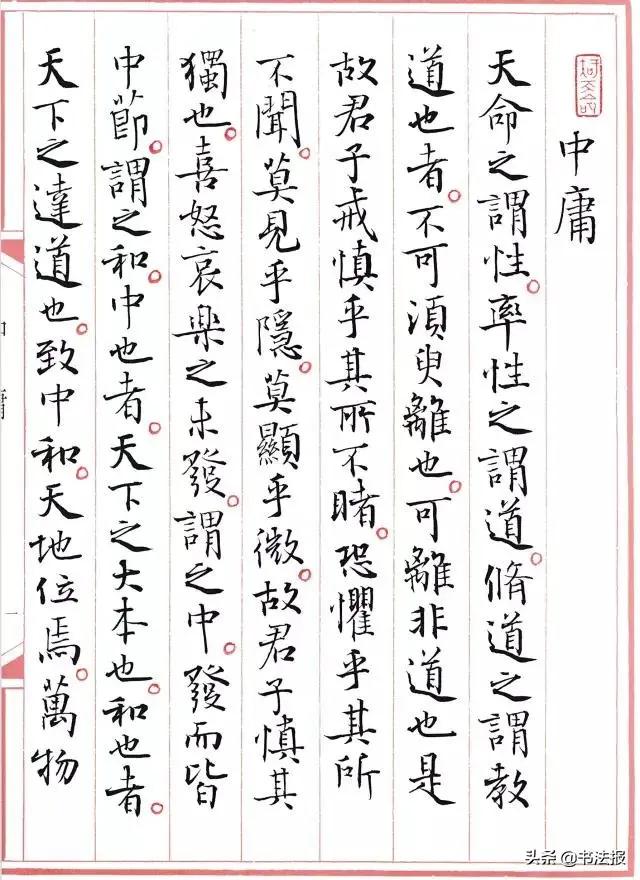 中庸
天命之謂性。率性之謂道。脩道之謂教
道也者。不可須臾離也。可離非道也是
故君子戒慎乎其所不睹。恐懼乎其所
不聞。莫見乎隱。莫顯乎微。故君子慎其
獨也。喜怒哀樂之未發。謂之中。發而皆
中節。謂之和。中也者。天下之大本也。和也者。
天下之達道也。致中和。天地位焉。萬物
头条 @书法报